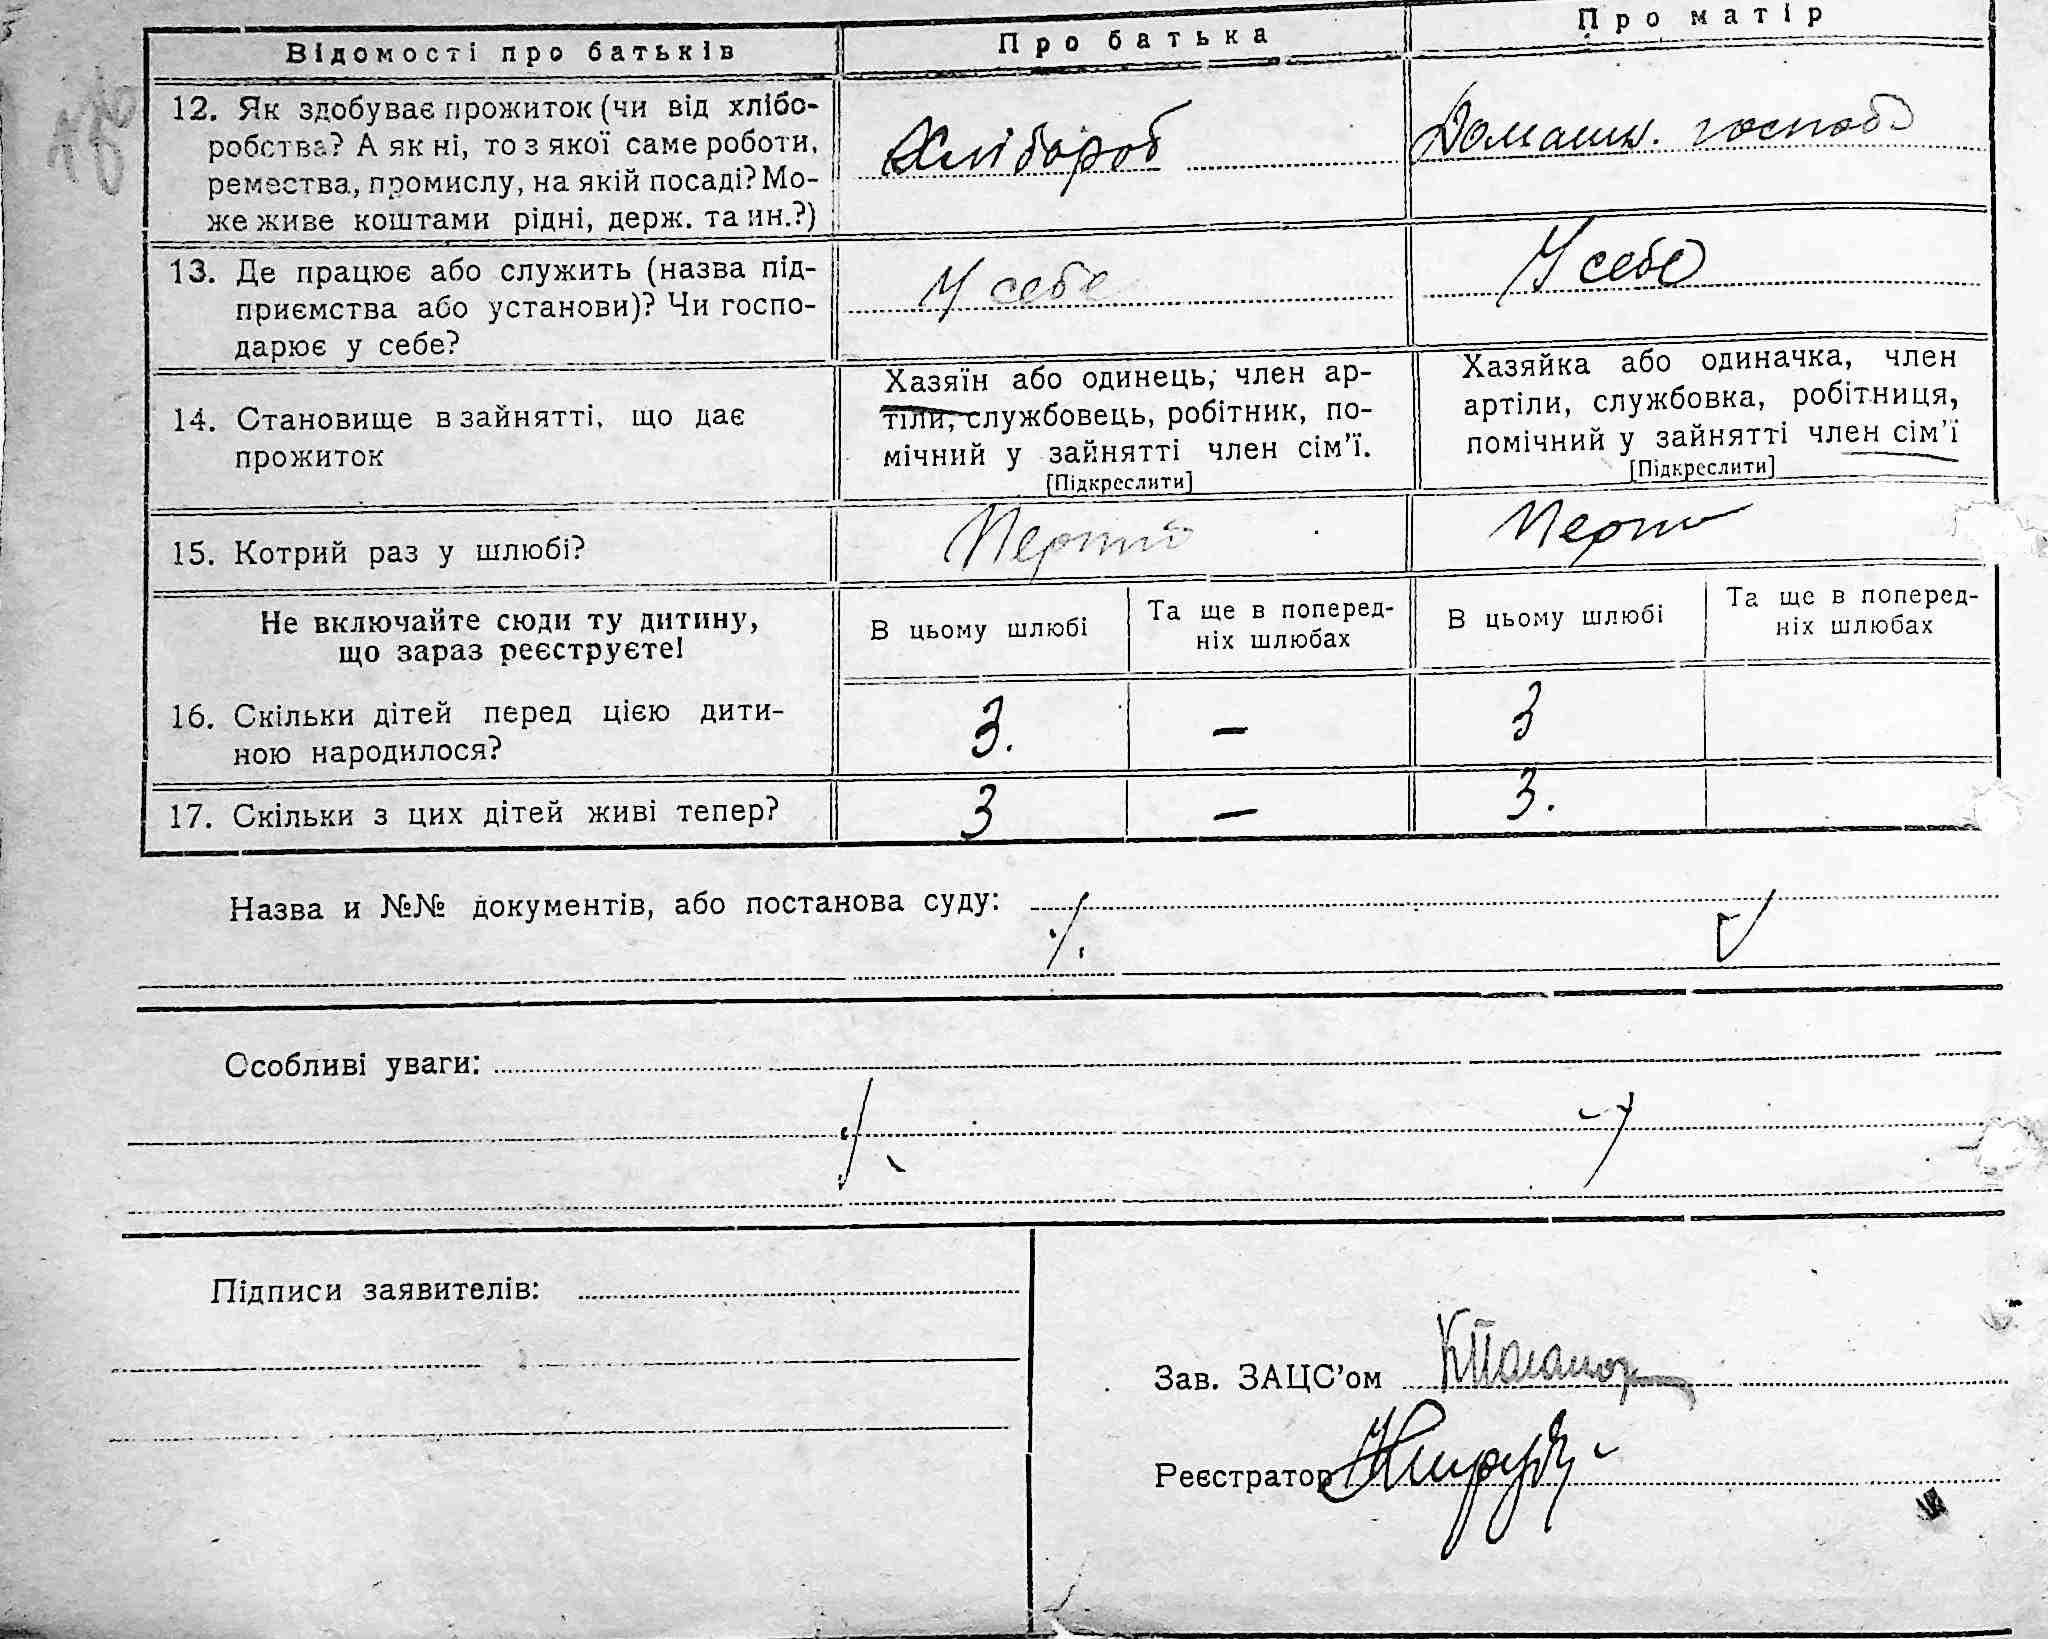 Відомості про батьків
Про батька
Про матір
12. Як здобуває прожиток (чи від хлібо-
робства? А як ні, то з якої саме роботи,
ремества, промислу, на якій посаді? Мо-
же живе коштами рідні, держ. та ин.?)
Хлібороб
Домашн. господ
13. Де працює або служить (назва під-
приємства або установи)? Чи госпо-
дарює у себе?
У себе
У себе
14. Становище в зайнятті, що дає
прожиток
Хазяїн або одинець, член ар-
тіли, службовець, робітник, по-
мічний у зайнятті член сім’ї.
[Підкреслити]
Хазяйка або одиначка, член
артіли, службовка, робітниця,
помічний у зайнятті член сім’ї
[Підкреслити]
15. Котрий раз у шлюбі?
Не включайте сюди ту дитину,
що зараз реєструєте!
В цьому шлюбі
Та ще в поперед-
ніх шлюбах
В цьому шлюбі
Та ще в поперед-
ніх шлюбах
16. Скільки дітей перед цією дити-
ною народилося?
3. – 3
17. Скільки з цих дітей живі тепер?
3 – 3.
Назва и №№ документів, або постанова суду:
Особливі уваги:
Підписи заявителів:
Зав. ЗАЦС’ом
Реєстратор